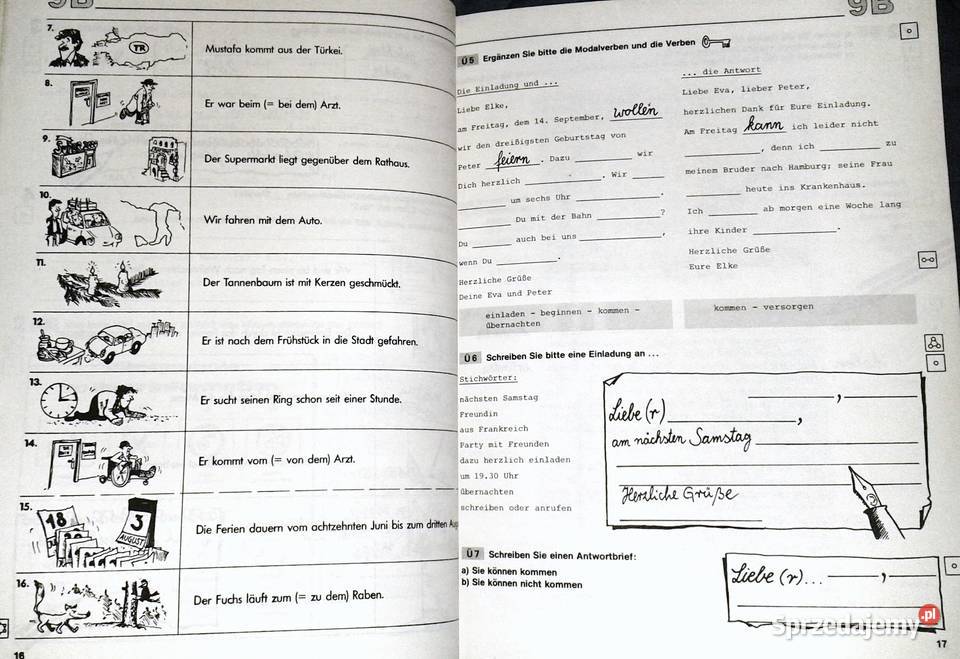 9B
7.
TR
Mustafa kommt aus der Türkei.
8.
Er war beim (= bei dem) Arzt.
9.
Der Supermarkt liegt gegenüber dem Rathaus.
10.
Wir fahren mit dem Auto.
11.
Der Tannenbaum ist mit Kerzen geschmückt.
12.
Er ist nach dem Frühstück in die Stadt gefahren.
13.
Er sucht seinen Ring schon seit einer Stunde.
14.
Er kommt vom (= von dem) Arzt.
15.
18
3
AUGUST
Die Ferien dauern vom achtzehnten Juni bis zum dritten
16.
Der Fuchs läuft zum (= zu dem) Raben.
16
9B
Ü5 Ergänzen Sie bitte die Modalverben und die Verben
Die Einladung und ...
Liebe Elke,
am Freitag, dem 14. September, wollen
wir den dreißigsten Geburtstag von
Peter feiern. Dazu ______ wir
Dich herzlich ______. Wir ______
______ um sechs Uhr ______.
______ Du mit der Bahn ______?
Du ______ auch bei uns ______,
wenn Du ______.
Herzliche Grüße
Deine Eva und Peter
einladen - beginnen - kommen -
übernachten
... die Antwort
Liebe Eva, lieber Peter,
herzlichen Dank für Eure Einladung.
Am Freitag kann ich leider nicht
______, denn ich ______ zu
meinem Bruder nach Hamburg; seine Frau
______ heute ins Krankenhaus.
Ich ______ ab morgen eine Woche lang
ihre Kinder ______.
Herzliche Grüße
Eure Elke
kommen - versorgen
Ü6 Schreiben Sie bitte eine Einladung an ...
Stichwörter:
nächsten Samstag
Freundin
aus Frankreich
Party mit Freunden
dazu herzlich einladen
um 19.30 Uhr
übernachten
schreiben oder anrufen
______, ______
Liebe(r) ______,
am nächsten Samstag
Herzliche Grüße
Ü7 Schreiben Sie einen Antwortbrief:
a) Sie können kommen
b) Sie können nicht kommen
______, ______
Liebe(r)...
17
Sprzedajemy.pl